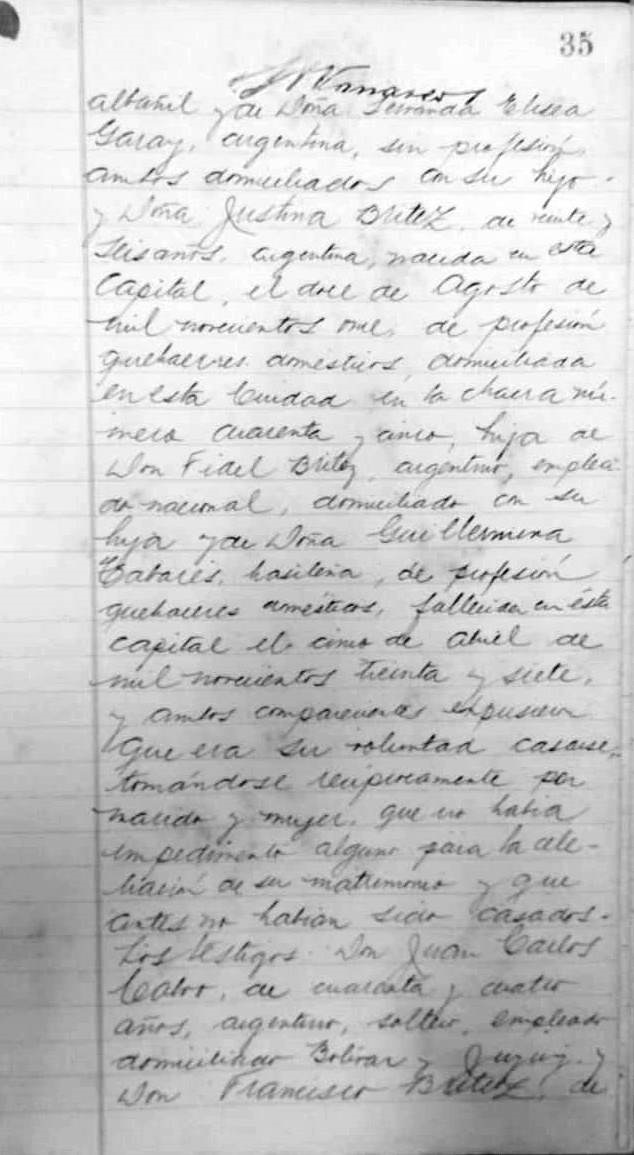 35
albañil y de Doña Fernanda Elisea
Garay, argentina, sin profesión,
ambos domiciliados con su hijo -
y Doña Justina Britez, de veinte y
seis años, argentina, nacida en esta
Capital, el doce de Agosto de
mil novecientos once, de profesión
quehaceres domésticos, domiciliada
en esta Ciudad en la chacra nú-
mero cuarenta y cinco, hija de
Don Fidel Britez, argentino, emplea-
do nacional, domiciliado con su
hija y de Doña Guillermina
Cabarés, brasileña, de profesión
quehaceres domésticos, fallecida en ésta
Capital el cinco de Abril de
mil novecientos treinta y siete,
y ambos comparecientes expusieron
Que era su voluntad casarse,
tomándose recíprocamente por
marido y mujer, que no había
impedimento alguno para la cele-
bración de su matrimonio y que
antes no habían sido casados.
Los testigos. Don Juan Carlos
Calvo, de cuarenta y cuatro
años, argentino, soltero, empleado
domiciliado Bolívar y Jujuy y
Don Francisco Britez, de